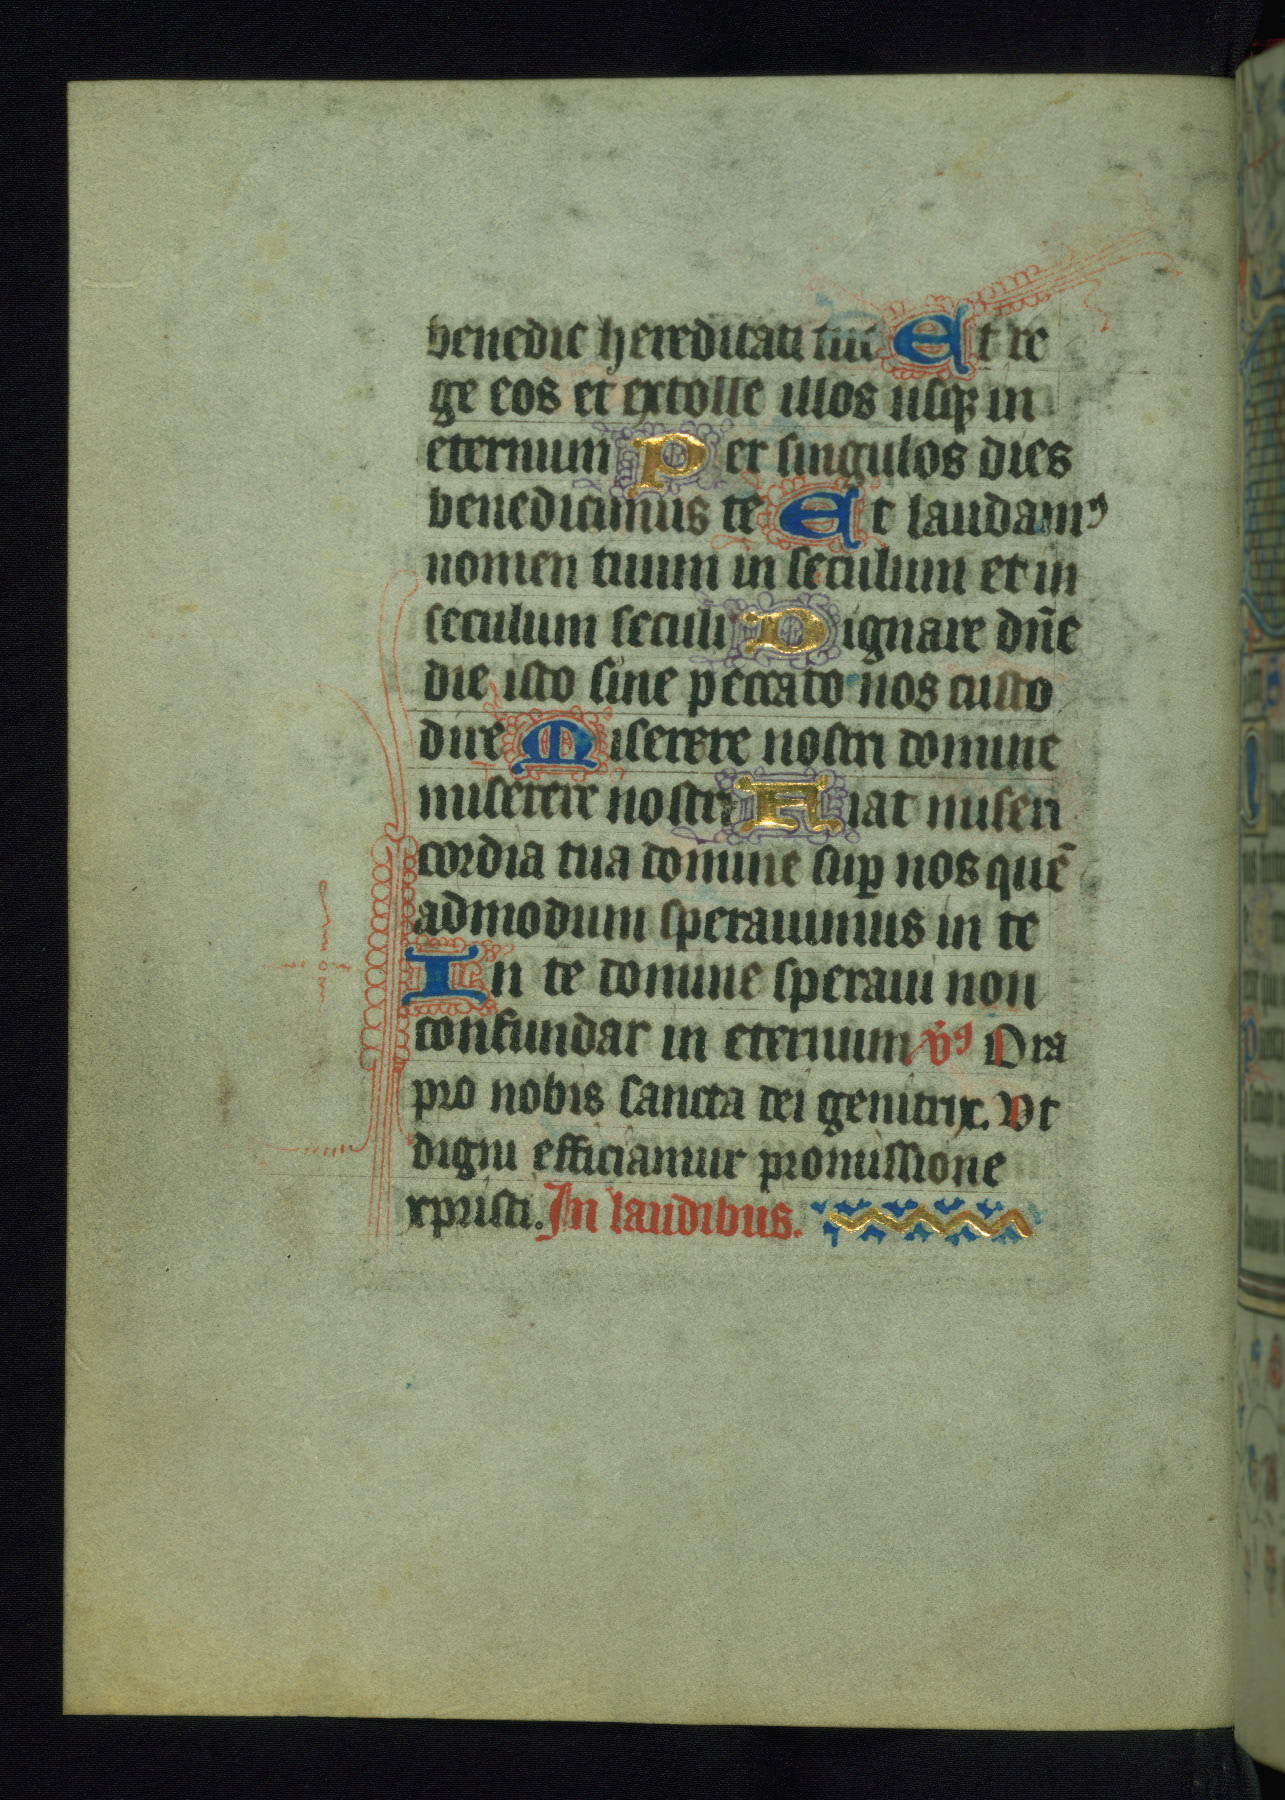 benedic hereditati tue Et re
ge eos et extolle illos usqꝫ in
eternum Per singulos dies
benedicimus te Et laudamꝰ
nomen tuum in seculum et in
seculum seculi Dignare dn̄e
die isto sine peccato nos custo
dire Miserere nostri domine
miserere nostri Fiat miseri
cordia tua domine suꝑ nos quē
admodum sperauimus in te
In te domine speraui non
confundar in eternum v̄ꝰ Ora
pro nobis sancta dei genitrix. Vt
digni efficiamur promissione
xpristi. In laudibus.